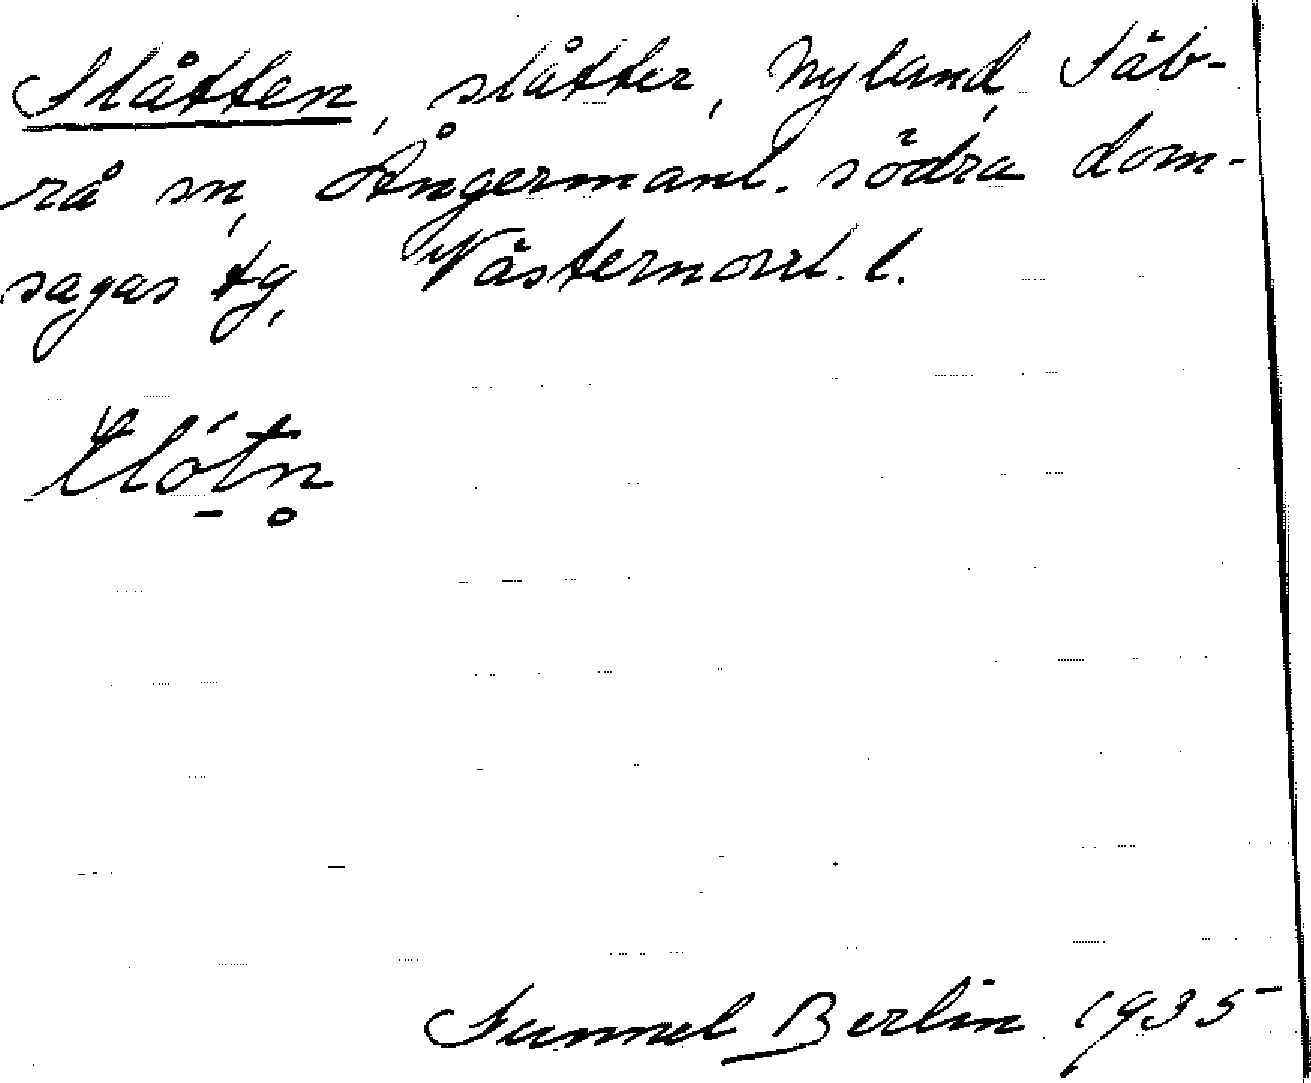 Slåtten, slåtter, Nyland, Säb-
rå sn, Ångermanl. södra dom-
sagas tg, Västernorrl. l.
Gunnel Berlin 1935